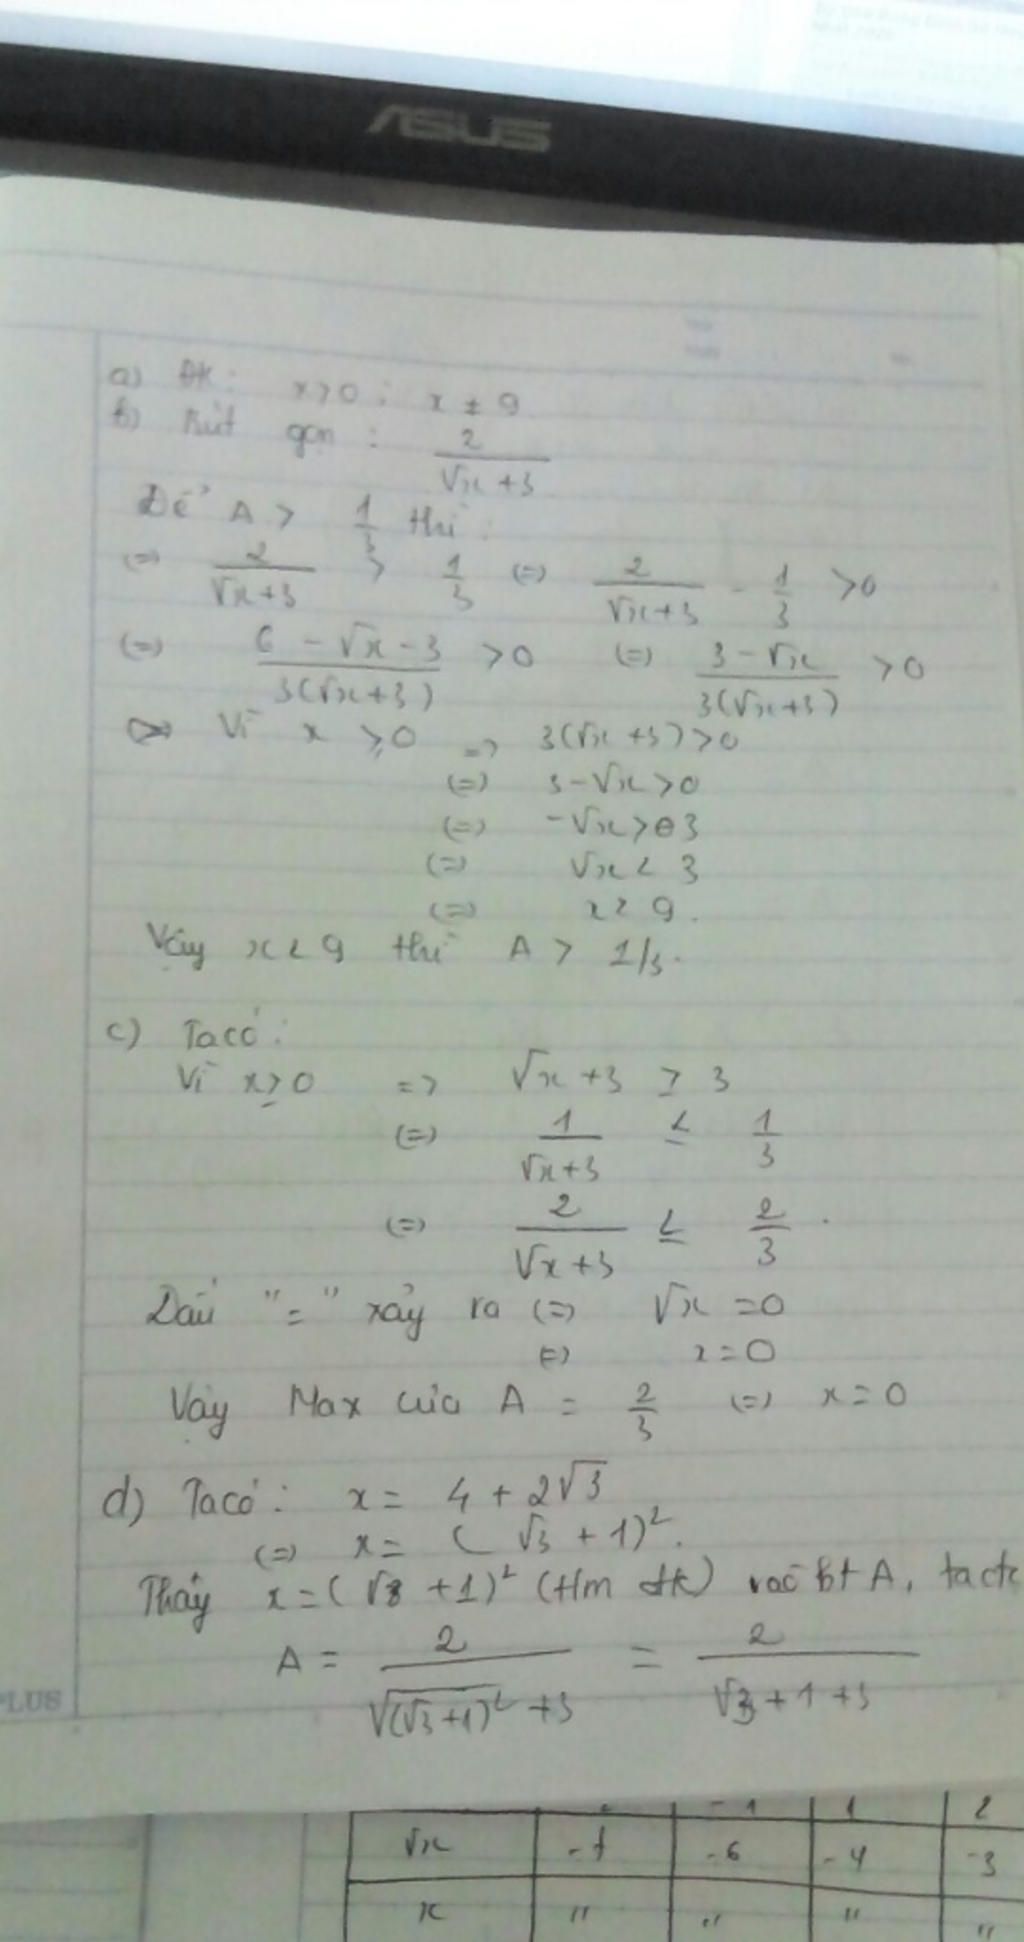 ASUS
a) ĐK: x>0; x ≠ 9
b) Rút gọn: 2/(√x+3)
Để A > 1/3 thì:
(=) 2/(√x+3) > 1/3 (=) 2/(√x+3) - 1/3 >0
(=) (6 - √x - 3)/(3(√x+3)) >0 (=) (3-√x)/(3(√x+3)) >0
Vì x ≥0 => 3(√x +3) >0
(=) 3-√x >0
(=) -√x > 3
(=) √x < 3
(=) x < 9.
Vậy x < 9 thì A > 1/3.
c) Ta có:
Vì x≥0 => √x +3 ≥ 3
(=) 1/(√x+3) ≤ 1/3
(=) 2/(√x+3) ≤ 2/3.
Dấu "=" xảy ra (=) √x =0
(=) x=0
Vậy Max của A = 2/3 (=) x=0
d) Ta có: x= 4 + 2√3
(=) x= (√3 + 1)².
Thay x=(√3 +1)² (t/m đk) vào bt A, ta có
A = 2/(√((√3+1)²) +3) = 2/(√3 + 1 +3)
PLUS
-1 1 2
√x -7 -6 -4 -3
x " " " "